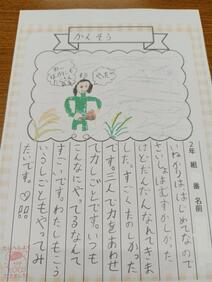 かんそう
やったー
2年 組 番 名前
いねかりははじめてなので
さいしょはむずかしかった
けどだんだんなれてきま
した。すごくたのしかった
です。三人で力をあわせ
て力しごとです。いつも
こんなにやってるなんて
すごいです。わたしもこう
いうしごともやってみ
たいです。